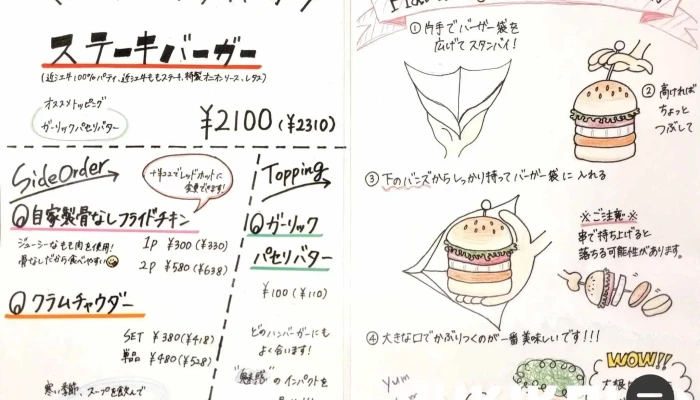 ステーキバーガー
(近江牛100%パティ、近江牛ももステーキ、特製オニオンソース、レタス)
オススメトッピング
ガーリックパセリバター
¥2100(¥2310)
Side Order
+¥22でレッドホットに
変更できます!
自家製骨なしフライドチキン
ジューシーなもも肉を使用!
骨なしだから食べやすい
1P ¥300(¥330)
2P ¥580(¥638)
クラムチャウダー
SET ¥380(¥418)
単品 ¥480(¥528)
寒い季節、スープを飲んで
Topping
ガーリック
パセリバター
¥100(¥110)
どのハンバーガーにも
よく合います!
"魅惑"のインパクトを
①片手でバーガー袋を
広げてスタンバイ!
②高ければ
ちょっと
つぶして
③下のバンズからしっかり持ってバーガー袋に入れる
※ご注意※
串で持ち上げると
落ちる可能性があります。
④大きな口でかぶりつくのが一番美味しいです!!!
Yum
WOW!!